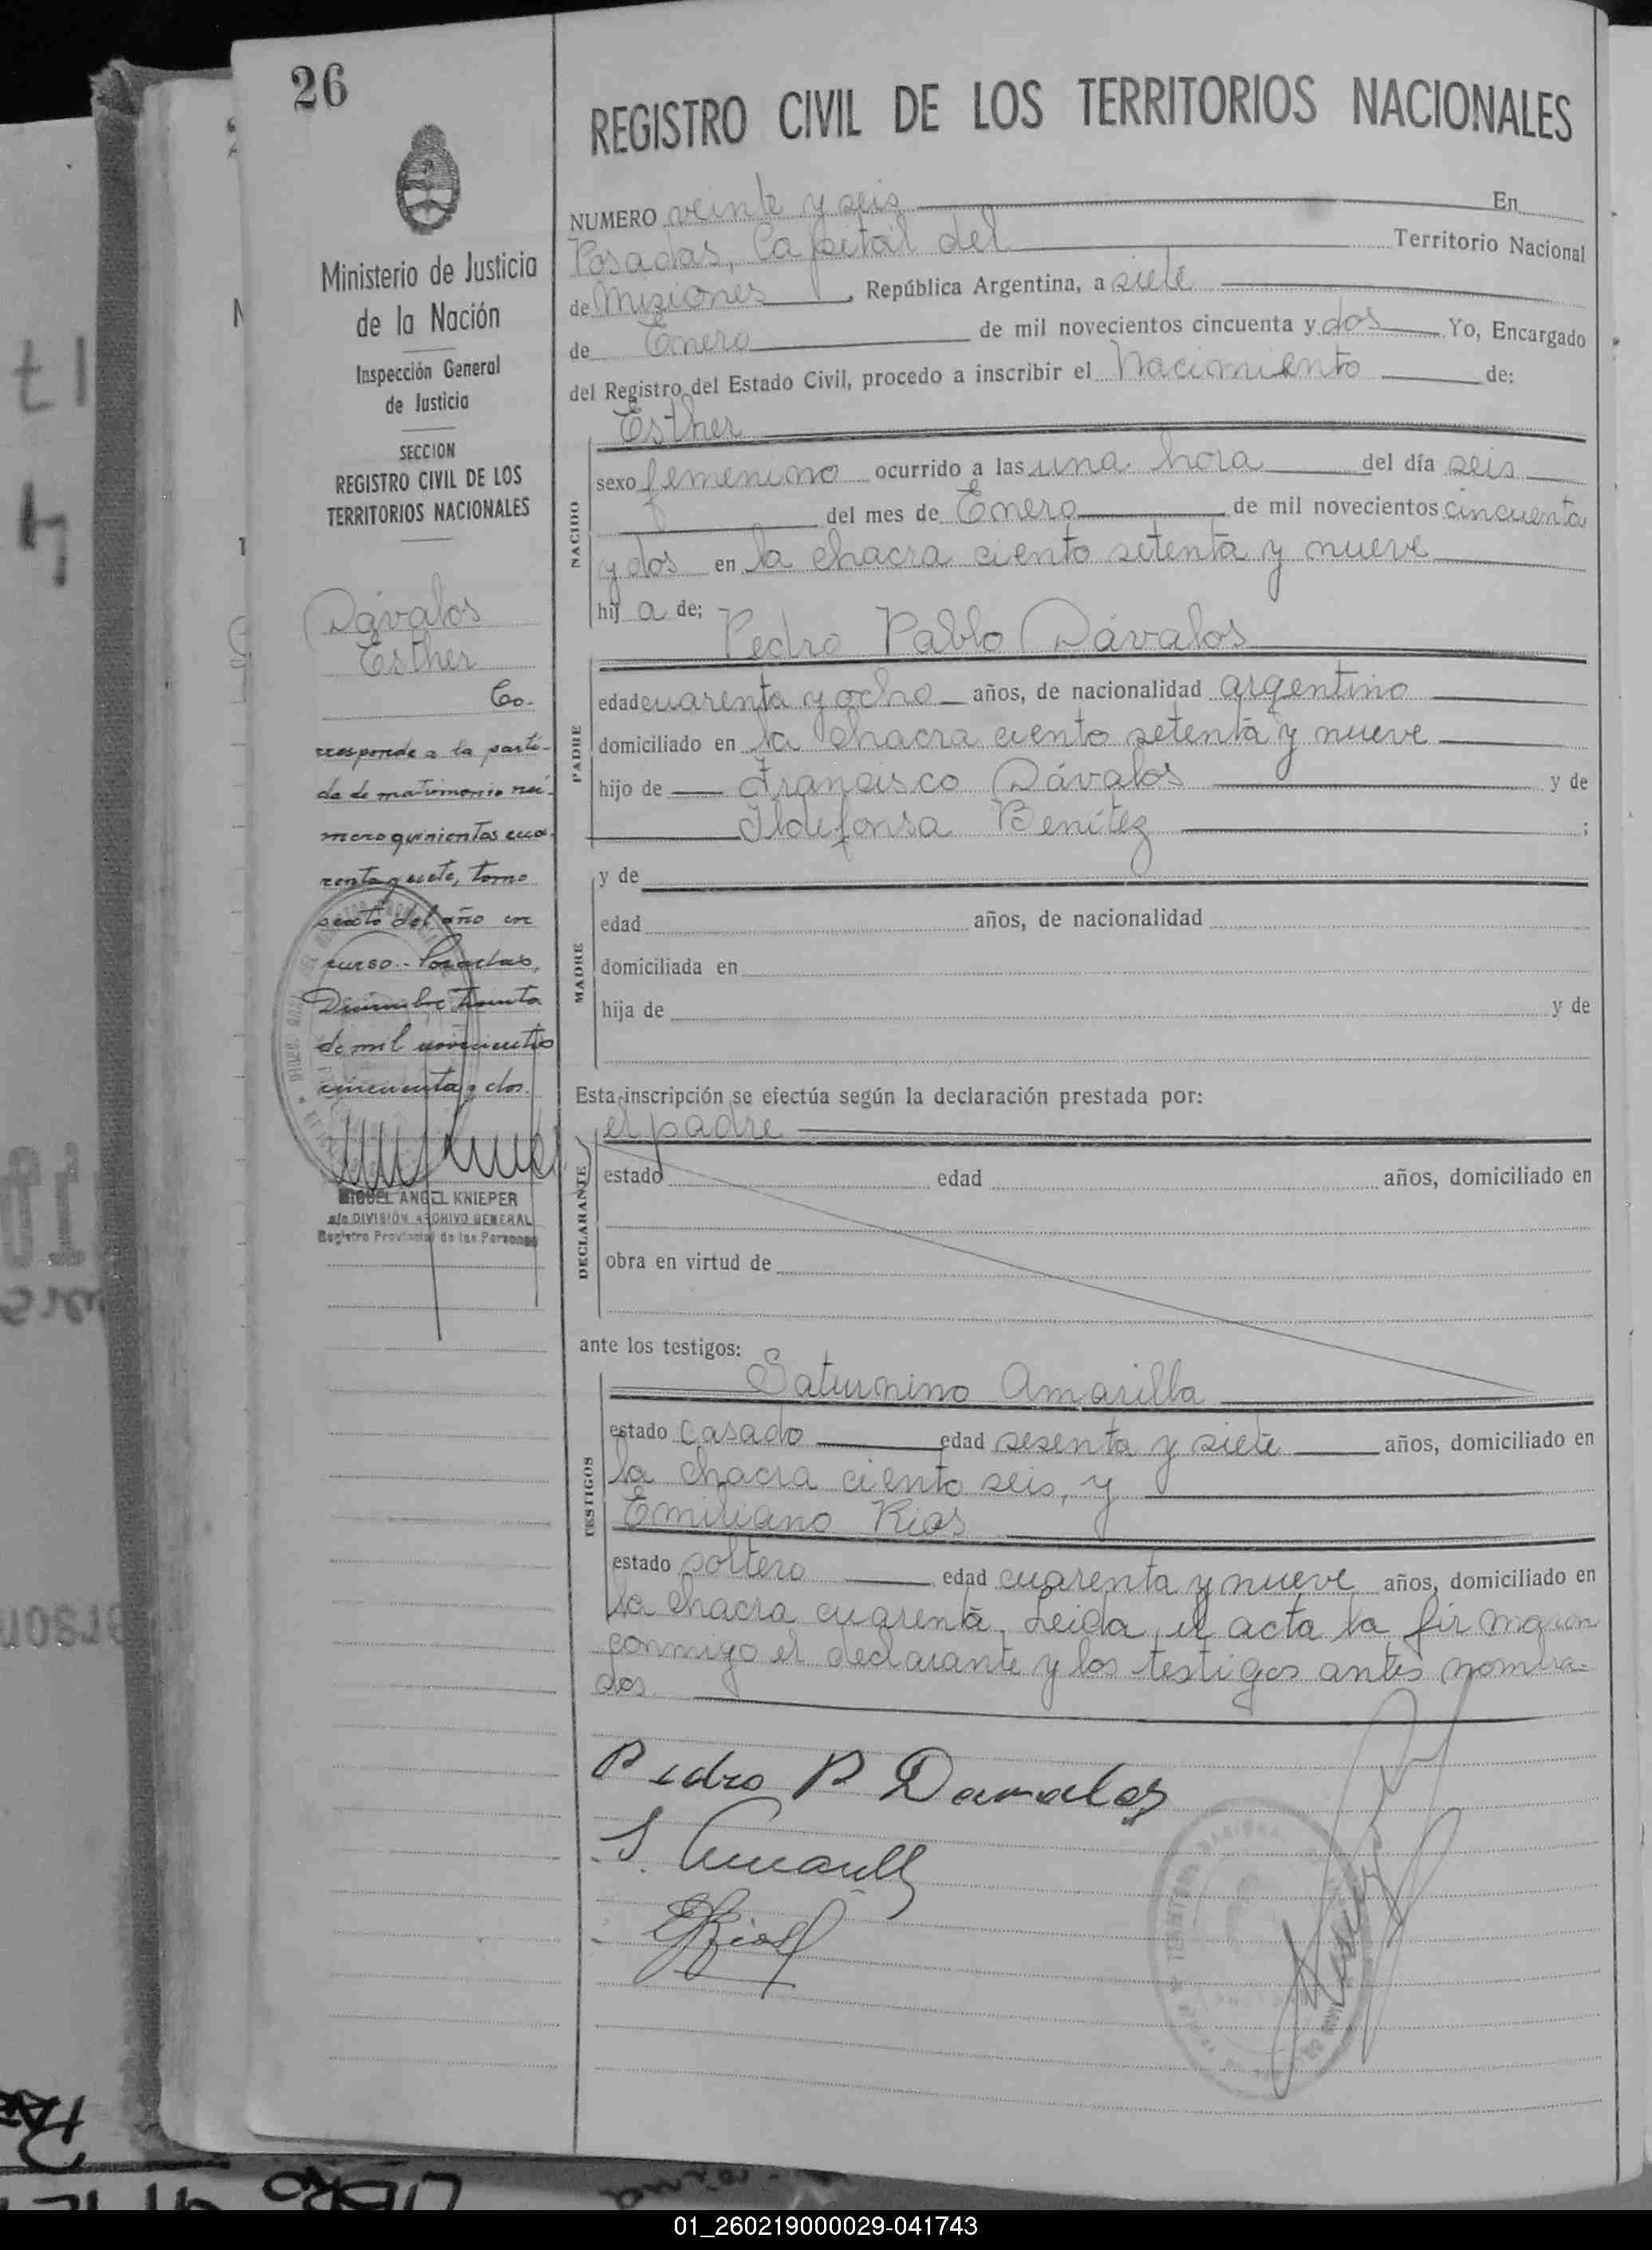 26
Ministerio de Justicia
de la Nación
Inspección General
de Justicia
SECCION
REGISTRO CIVIL DE LOS
TERRITORIOS NACIONALES
Dávalos
Esther
Co-
rresponde a la parti-
da de matrimonio nú-
mero quinientos cua-
renta y siete, tomo
sexto del año en
curso.- Posadas,
Diciembre treinta
de mil novecientos
cincuenta y dos.
MIGUEL ANGEL KNIEPER
a/c DIVISIÓN ARCHIVO GENERAL
Registro Provincial de las Personas
REGISTRO CIVIL DE LOS TERRITORIOS NACIONALES
NUMERO veinte y seis En
Posadas, Capital del Territorio Nacional
de Misiones, República Argentina, a siete
de Enero de mil novecientos cincuenta y dos Yo, Encargado
del Registro del Estado Civil, procedo a inscribir el Nacimiento de:
Esther
NACIDO
sexo femenino ocurrido a las una hora del día seis
del mes de Enero de mil novecientos cincuenta
y dos en la chacra ciento setenta y nueve
hij a de:
Pedro Pablo Dávalos
PADRE
edad cuarenta y ocho años, de nacionalidad argentino
domiciliado en la chacra ciento setenta y nueve
hijo de Francisco Dávalos y de
Ildefonsa Benítez ;
MADRE
y de
edad años, de nacionalidad
domiciliada en
hija de y de
Esta inscripción se efectúa según la declaración prestada por:
el padre
DECLARANTE
estado edad años, domiciliado en
obra en virtud de
ante los testigos:
Saturnino Amarilla
TESTIGOS
estado casado edad sesenta y siete años, domiciliado en
la chacra ciento seis, y
Emiliano Rios
estado soltero edad cuarenta y nueve años, domiciliado en
la chacra cuarenta. Leida el acta la firmaron
conmigo el declarante y los testigos antes nombra=
dos.
Pedro P Davalos
S. Amarilla
E Rios
01_260219000029-041743